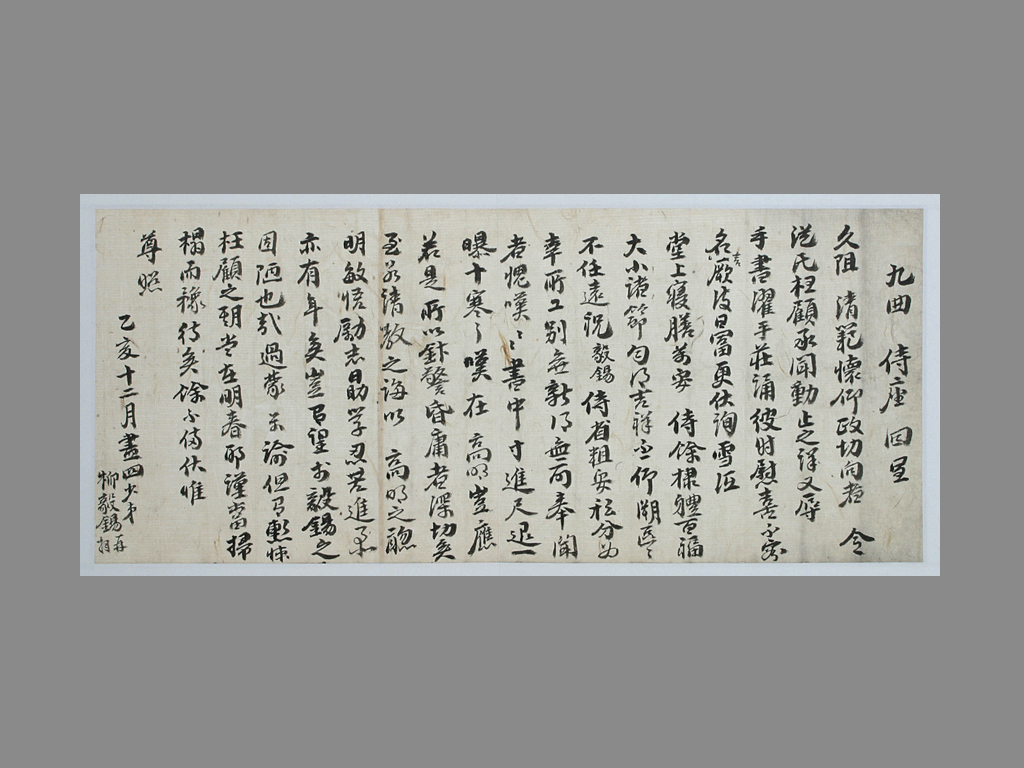 九曲 侍座 回呈
久阻 清範懷仰政切向者 令
從氏枉顧承聞動止之詳又辱
手書濯手莊誦彼時慰喜不容
名厥後日富更伏詢雪沍
堂上寢膳萬安 侍餘棣體百福
大小諸節勻得吉祥否仰溯區區
不任遠祝毅錫侍省粗安私分爲
幸所工別無新得無一可奉聞
者愧嘆愧嘆書中寸進尺退一
曝十寒之嘆在 高明豈應
若是所以針警昏庸者深切矣
至若請教之誨以 高明之聰
明敏悟勵志勖學忍苦進業
亦有年矣豈有望於毅錫之
固陋也哉過蒙 示諭但有慙悚
枉顧之期當在明春耶謹當掃
榻而稼待矣餘不備伏惟
尊照
乙亥十二月盡四少弟
柳毅錫再拜